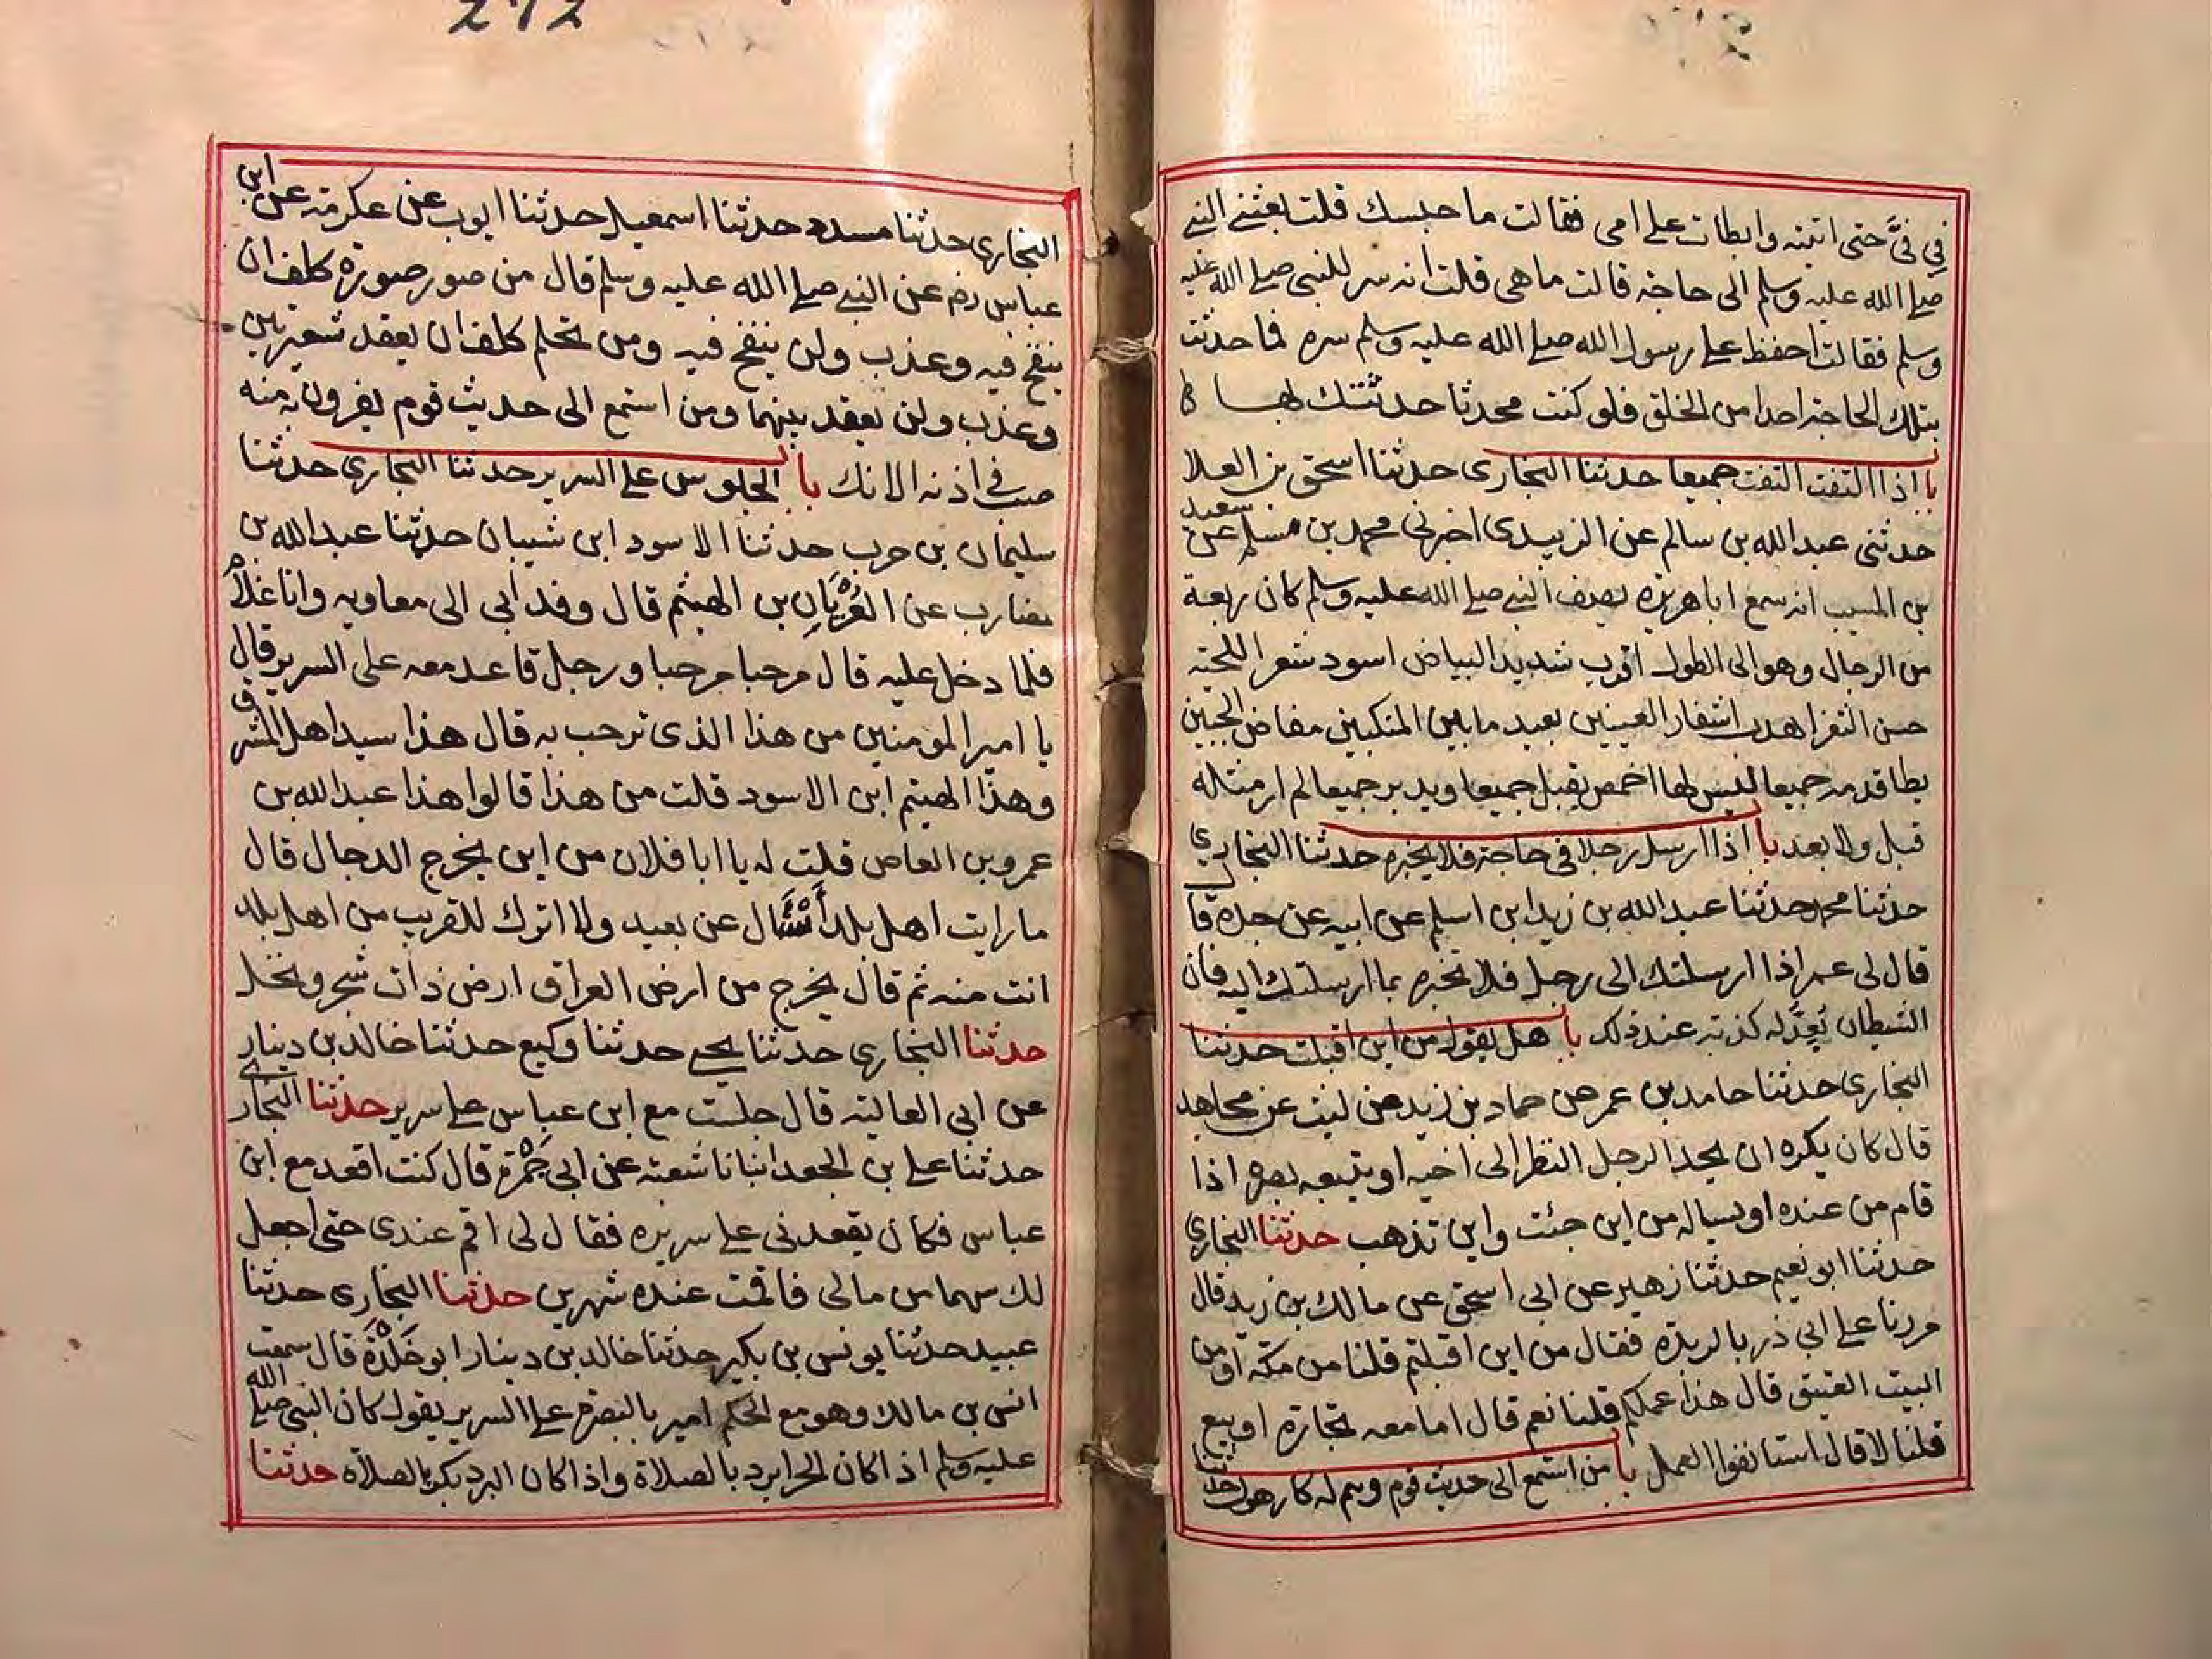 في فيَّ حتى اتيته وابطات على امى فقالت ما حبسك قلت بعثني النبي
صلى الله عليه وسلم الى حاجة قالت ما هى قلت انه سر للنبي صلى الله عليه
وسلم فقالت احفظ على رسول الله صلى الله عليه وسلم سره فما حدثت
بتلك الحاجة احدا من الخلق فلو كنت محدثا حدثتك بها
با اذا التفت التفت جميعا حدثنا البخارى حدثنا اسحق بن العلا
حدثنى عبد الله بن سالم عن الزبيدى اخبرنى محمد بن مسلم عن سعيد
بن المسيب انه سمع ابا هريرة يصف النبي صلى الله عليه وسلم كان ربعة
من الرجال وهو الى الطول اقرب شديد البياض اسود شعر اللحية
حسن الثغر اهدب اشفار العينين بعيد ما بين المنكبين مفاض الجبين
يطا قدمه جميعا ليس لها اخمص يقبل جميعا ويدبر جميعا لم ار مثله
قبل ولا بعد با اذا ارسل رجلا في حاجة فلا يخبره حدثنا البخاري
حدثنا محمد حدثنا عبد الله بن زيد ابن اسلم عن ابيه عن جده قا
قال لى عمر اذا ارسلتك الى رجل فلا تخبره بما ارسلتك اليه فان
الشيطان يُعِدَّ له كذبة عند ذلك با هل يقول من اين اقبلت حدثنا
البخارى حدثنا حامد بن عمر عن حماد بن زيد عن ليث عن مجاهد
قال كان يكره ان يحد الرجل النظر الى اخيه او يتبعه بصره اذا
قام من عنده او يساله من اين جئت واين تذهب حدثنا البخاري
حدثنا ابو نعيم حدثنا زهير عن ابى اسحق عن مالك بن زبيد قال
مررنا على ابي ذر بالربذة فقال من اين اقبلتم قلنا من مكة او من
البيت العتيق قال هذا عملكم قلنا نعم قال اما معه تجارة او بيع
قلنا لا قال استانفوا العمل با من استمع الى حديث قوم وهم له كارهون حدثنا
البخارى حدثنا مسدد حدثنا اسمعيل حدثنا ايوب عن عكرمة عن ابن
عباس رضم عن النبي صلى الله عليه وسلم قال من صور صورة كلف ان
ينفخ فيه وعذب ولن ينفخ فيه ومن تحلم كلف ان يعقد شعيرتين
وعذب ولن يعقد بينهما ومن استمع الى حديث قوم يفرون به منه
صب في اذنه الانك با الجلوس على السرير حدثنا البخارى حدثنا
سليمان بن حرب حدثنا الاسود ابن شيبان حدثنا عبد الله بن
مضارب عن العُرْيَانِ بن الهيثم قال وفد ابى الى معاويه وانا غلام
فلما دخل عليه قال مرحبا مرحبا ورجل قاعد معه على السرير قال
يا امير المومنين من هذا الذى ترحب به قال هذا سيد اهل المشرق
وهذا الهيثم ابن الاسود قلت من هذا قالوا هذا عبد الله بن
عمرو بن العاص قلت له يا ابا فلان من اين يخرج الدجال قال
ما رايت اهل بلد أسْئَال عن بعيد ولا اترك للقريب من اهل بلد
انت منه ثم قال يخرج من ارض العراق ارض ذات شجر ونخل
حدثنا البخارى حدثنا يحيي حدثنا وكيع حدثنا خالد بن دينار
عن ابى العالية قال جلست مع ابن عباس على سرير حدثنا البخاري
حدثنا على بن الجعد انبانا شعبة عن ابى جَمْرَة قال كنت اقعد مع ابن
عباس فكان يقعدنى على سريره فقال لى اقم عندى حتى اجعل
لك سهما من مالى فاقمت عنده شهرين حدثنا البخارى حدثنا
عبيد حدثنا يونس بن بكير حدثنا خالد بن دينار ابو خَلْدَة قال سمعت
انس بن مالك وهو مع الحكم امير بالبصرة على السرير يقول كان النبي صلى الله
عليه وسلم اذا كان الحر ابرد بالصلاة واذا كان البرد بكر بالصلاة حدثنا